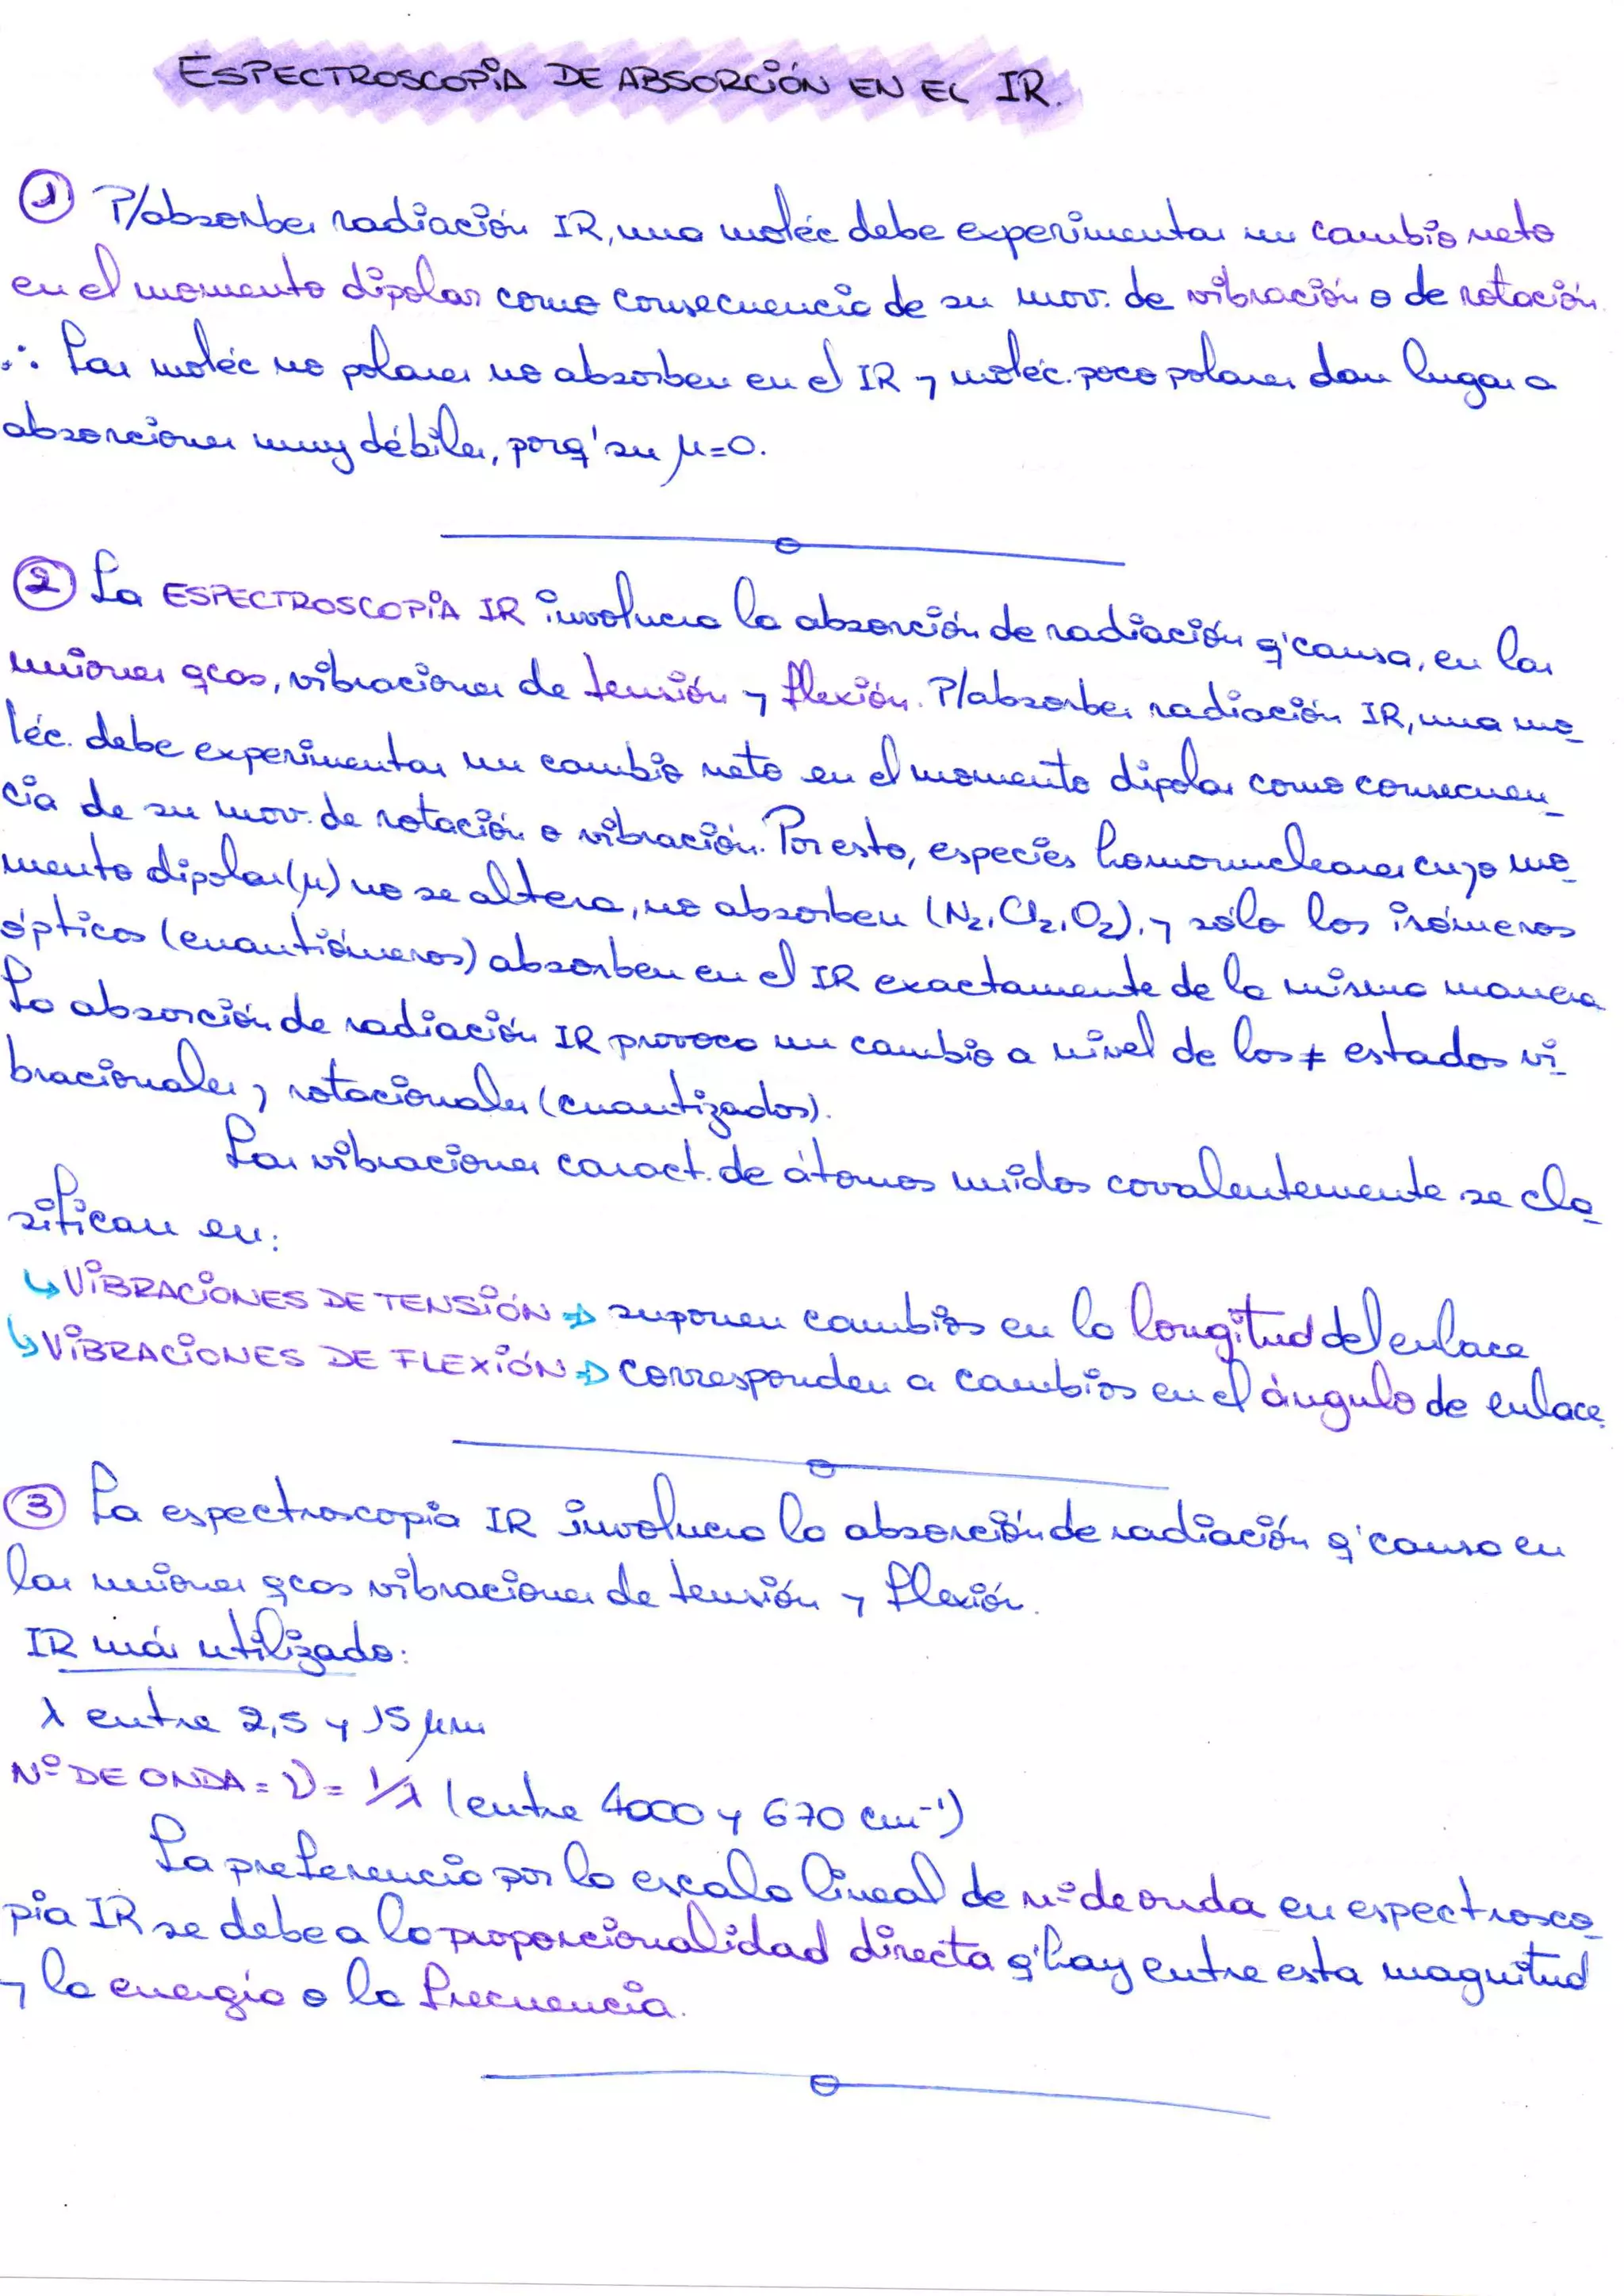 ESPECTROSCOPIA DE ABSORCIÓN EN EL IR.
① P/absorber radiación IR, una moléc debe experimentar un cambio neto
en el momento dipolar como consecuencia de su mov. de vibración o de rotación.
∴ Las moléc no polares no absorben en el IR y moléc. poco polares dan lugar a
absorciones muy débiles, porq' su μ=0.
② La ESPECTROSCOPIA IR involucra la absorción de radiación q' causa, en las
uniones qcas, vibraciones de tensión y flexión. P/absorber radiación IR, una mo
léc. debe experimentar un cambio neto en el momento dipolar como consecuen
cia de su mov. de rotación o vibración. Por esto, especies homonucleares cuyo mo
mento dipolar (μ) no se altera, no absorben (N₂, Cl₂, O₂), y sólo los isómeros
ópticos (enantiómeros) absorben en el IR exactamente de la misma manera
La absorción de radiación IR provoca un cambio a nivel de los ≠ estados vi
bracionales y rotacionales (cuantizados).
Las vibraciones caract. de átomos unidos covalentemente se cla
sifican en:
↳ VIBRACIONES DE TENSIÓN → suponen cambios en la longitud del enlace
↳ VIBRACIONES DE FLEXIÓN → corresponden a cambios en el ángulo de enlace.
③ La espectroscopia IR involucra la absorción de radiación q' causa en
las uniones qcas vibraciones de tensión y flexión.
IR más utilizado:
λ entre 2,5 y 15 μm
Nº DE ONDA = ν = 1/λ (entre 4000 y 670 cm⁻¹)
La preferencia por la escala lineal de nº de onda en espectrosco
pia IR se debe a la proporcionalidad directa q' hay entre esta magnitud
y la energía o la frecuencia.